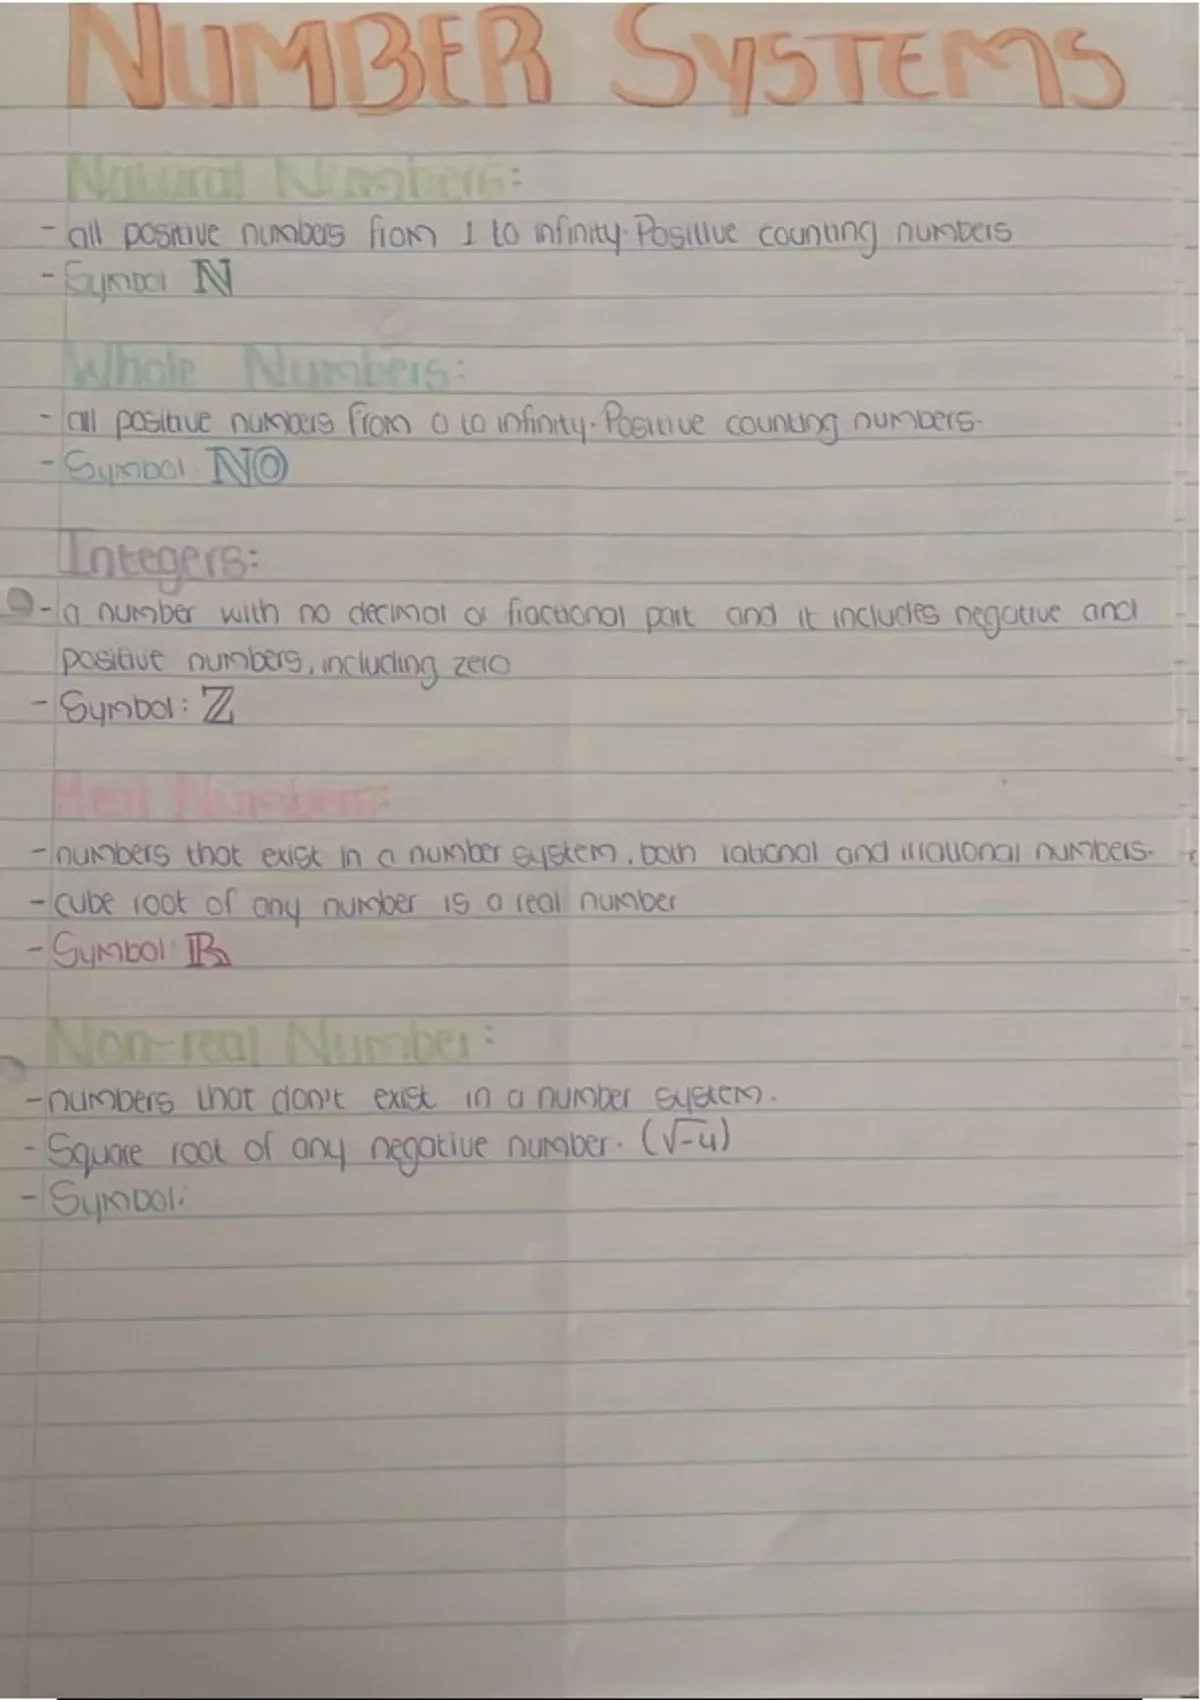 NUMBER SYSTEMS
Natural Numbers:
- all positive numbers from 1 to infinity. Positive counting numbers
- Symbol ℕ
Whole Numbers:
- all positive numbers from 0 to infinity. Positive counting numbers.
- Symbol. ℕ𝕆
Integers:
- a number with no decimal or fractional part and it includes negative and
positive numbers, including zero
- Symbol: ℤ
Real Numbers:
- numbers that exist in a number system, both rational and irrational numbers.
- cube root of any number is a real number
- Symbol: ℝ
Non-real Number:
- numbers that don't exist in a number system.
- Square root of any negative number. (√-4)
- Symbol: